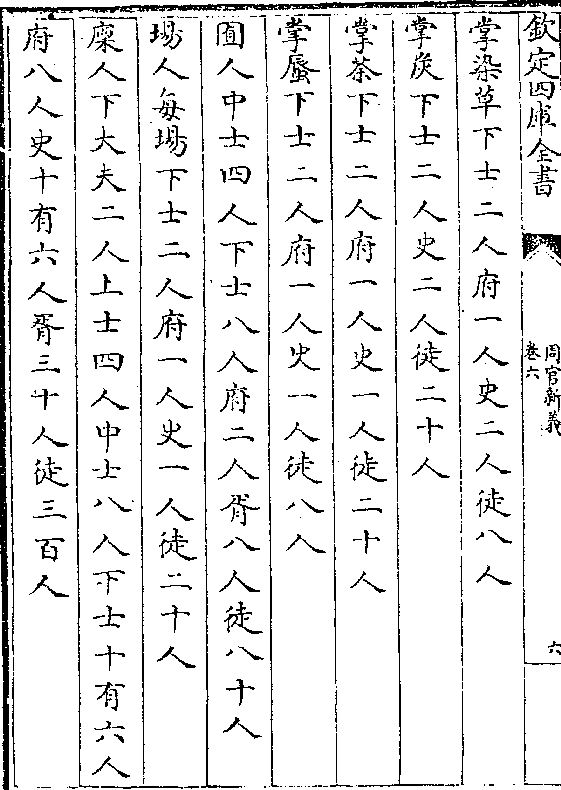 欽定四庫全書
周官新義
卷六
六
掌染草下士二人府一人史二人徒八人
掌炭下士二人史二人徒二十人
掌荼下士二人府一人史一人徒二十人
掌蜃下士二人府一人史一人徒八人
囿人中士四人下士八人府二人胥八人徒八十人
場人每場下士二人府一人史一人徒二十人
廩人下大夫二人上士四人中士八人下士十有六人
府八人史十有六人胥三十人徒三百人